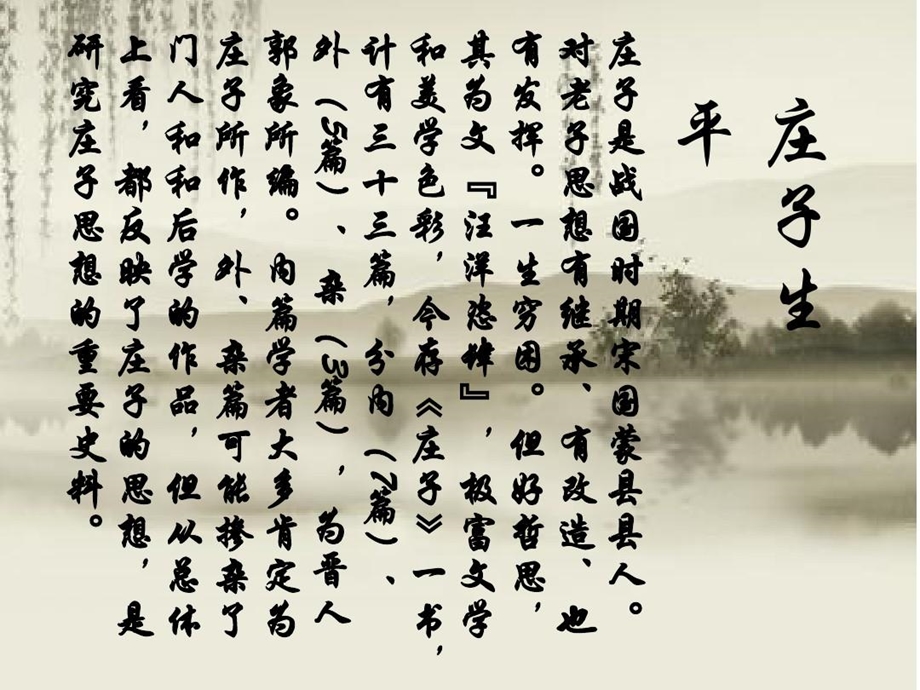 庄子生
平
庄子是战国时期宋国蒙县县人。
对老子思想有继承、有改造、也
有发挥。一生穷困。但好哲思，
其为文『汪洋恣肆』，极富文学
和美学色彩，今存《庄子》一书，
计有三十三篇，分内（7篇）、
外（5篇）、杂（3篇），为晋人
郭象所编。内篇学者大多肯定为
庄子所作，外、杂篇可能掺杂了
门人和和后学的作品，但从总体
上看，都反映了庄子的思想，是
研究庄子思想的重要史料。